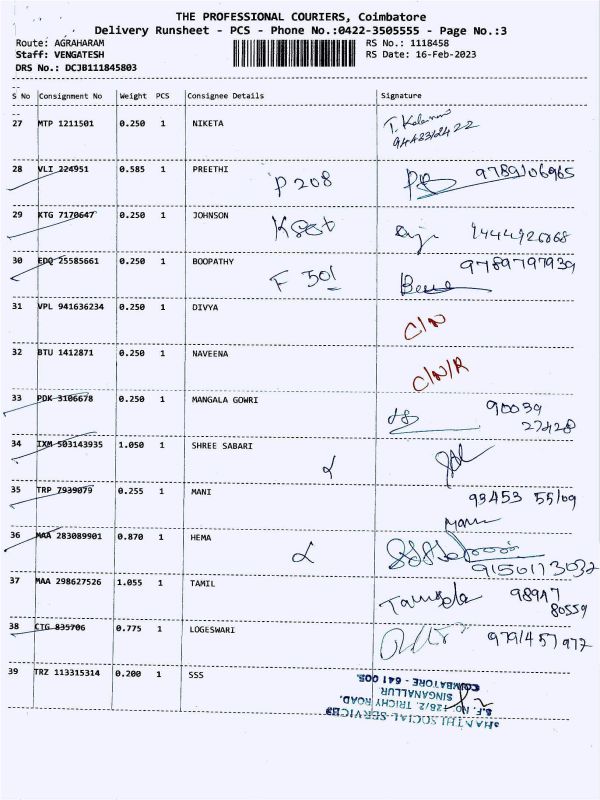 THE PROFESSIONAL COURIERS, Coimbatore
Delivery Runsheet - PCS - Phone No.:0422-3505555 - Page No.:3
Route: AGRAHARAM
RS No.: 1118458
Staff: VENGATESH
RS Date: 16-Feb-2023
DRS No.: DCJB111845803
S No Consignment No Weight PCS Consignee Details Signature
27 MTP 1211501 0.250 1 NIKETA
28 VLI 224951 0.585 1 PREETHI P 208 9789106965
29 KTG 7170647 0.250 1 JOHNSON
30 EDQ 25585661 0.250 1 BOOPATHY F 301 9789797939
31 VPL 941636234 0.250 1 DIVYA C/N
32 BTU 1412871 0.250 1 NAVEENA C/N/R
33 PDK 3106678 0.250 1 MANGALA GOWRI 90039
27428
34 IXM 503143935 1.050 1 SHREE SABARI
35 TRP 7939079 0.255 1 MANI 93453 55109
Mani
36 MAA 283089901 0.870 1 HEMA
9150173032
37 MAA 298627526 1.055 1 TAMIL 98947
80559
38 CTG 835706 0.775 1 LOGESWARI 9791457972
39 TRZ 113315314 0.200 1 SSS
SHANTHI SOCIAL SERVICES
S.F. No. 428/2, TRICHY ROAD,
SINGANALLUR
COIMBATORE - 641 005.